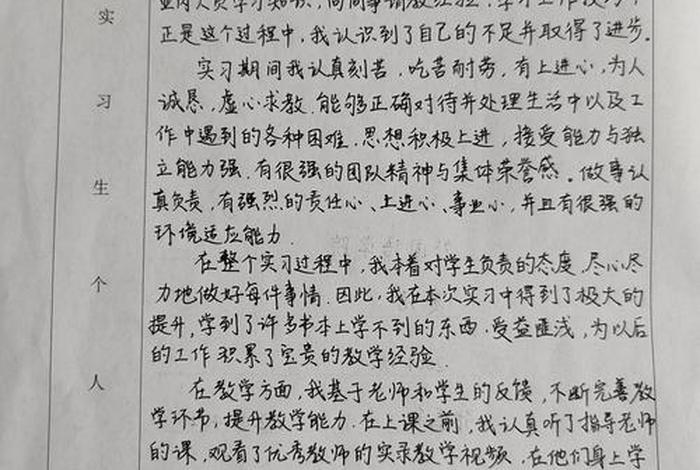 业内人员学习知识，向同事请教经验，学习工作技巧。
正是这个过程中，我认识到了自己的不足并取得了进步。
实习期间我认真刻苦，吃苦耐劳，有上进心，为人
诚恳，虚心求教，能够正确对待并处理生活中以及工
作中遇到的各种困难，思想积极上进，接受能力与独
立能力强，有很强的团队精神与集体荣誉感。做事认
真负责，有强烈的责任心、上进心、事业心，并且有很强的
环境适应能力.
在整个实习过程中，我本着对学生负责的态度，尽心尽
力地做好每件事情. 因此，我在本次实习中得到了极大的
提升，学到了许多书本上学不到的东西. 受益匪浅，为以后
的工作积累了宝贵的教学经验.
在教学方面，我基于老师和学生的反馈，不断完善教
学环节，提升教学能力. 在上课之前，我认真听了指导老师
的课，观看了优秀教师的实录教学视频，在他们身上学
实
习
生
个
人